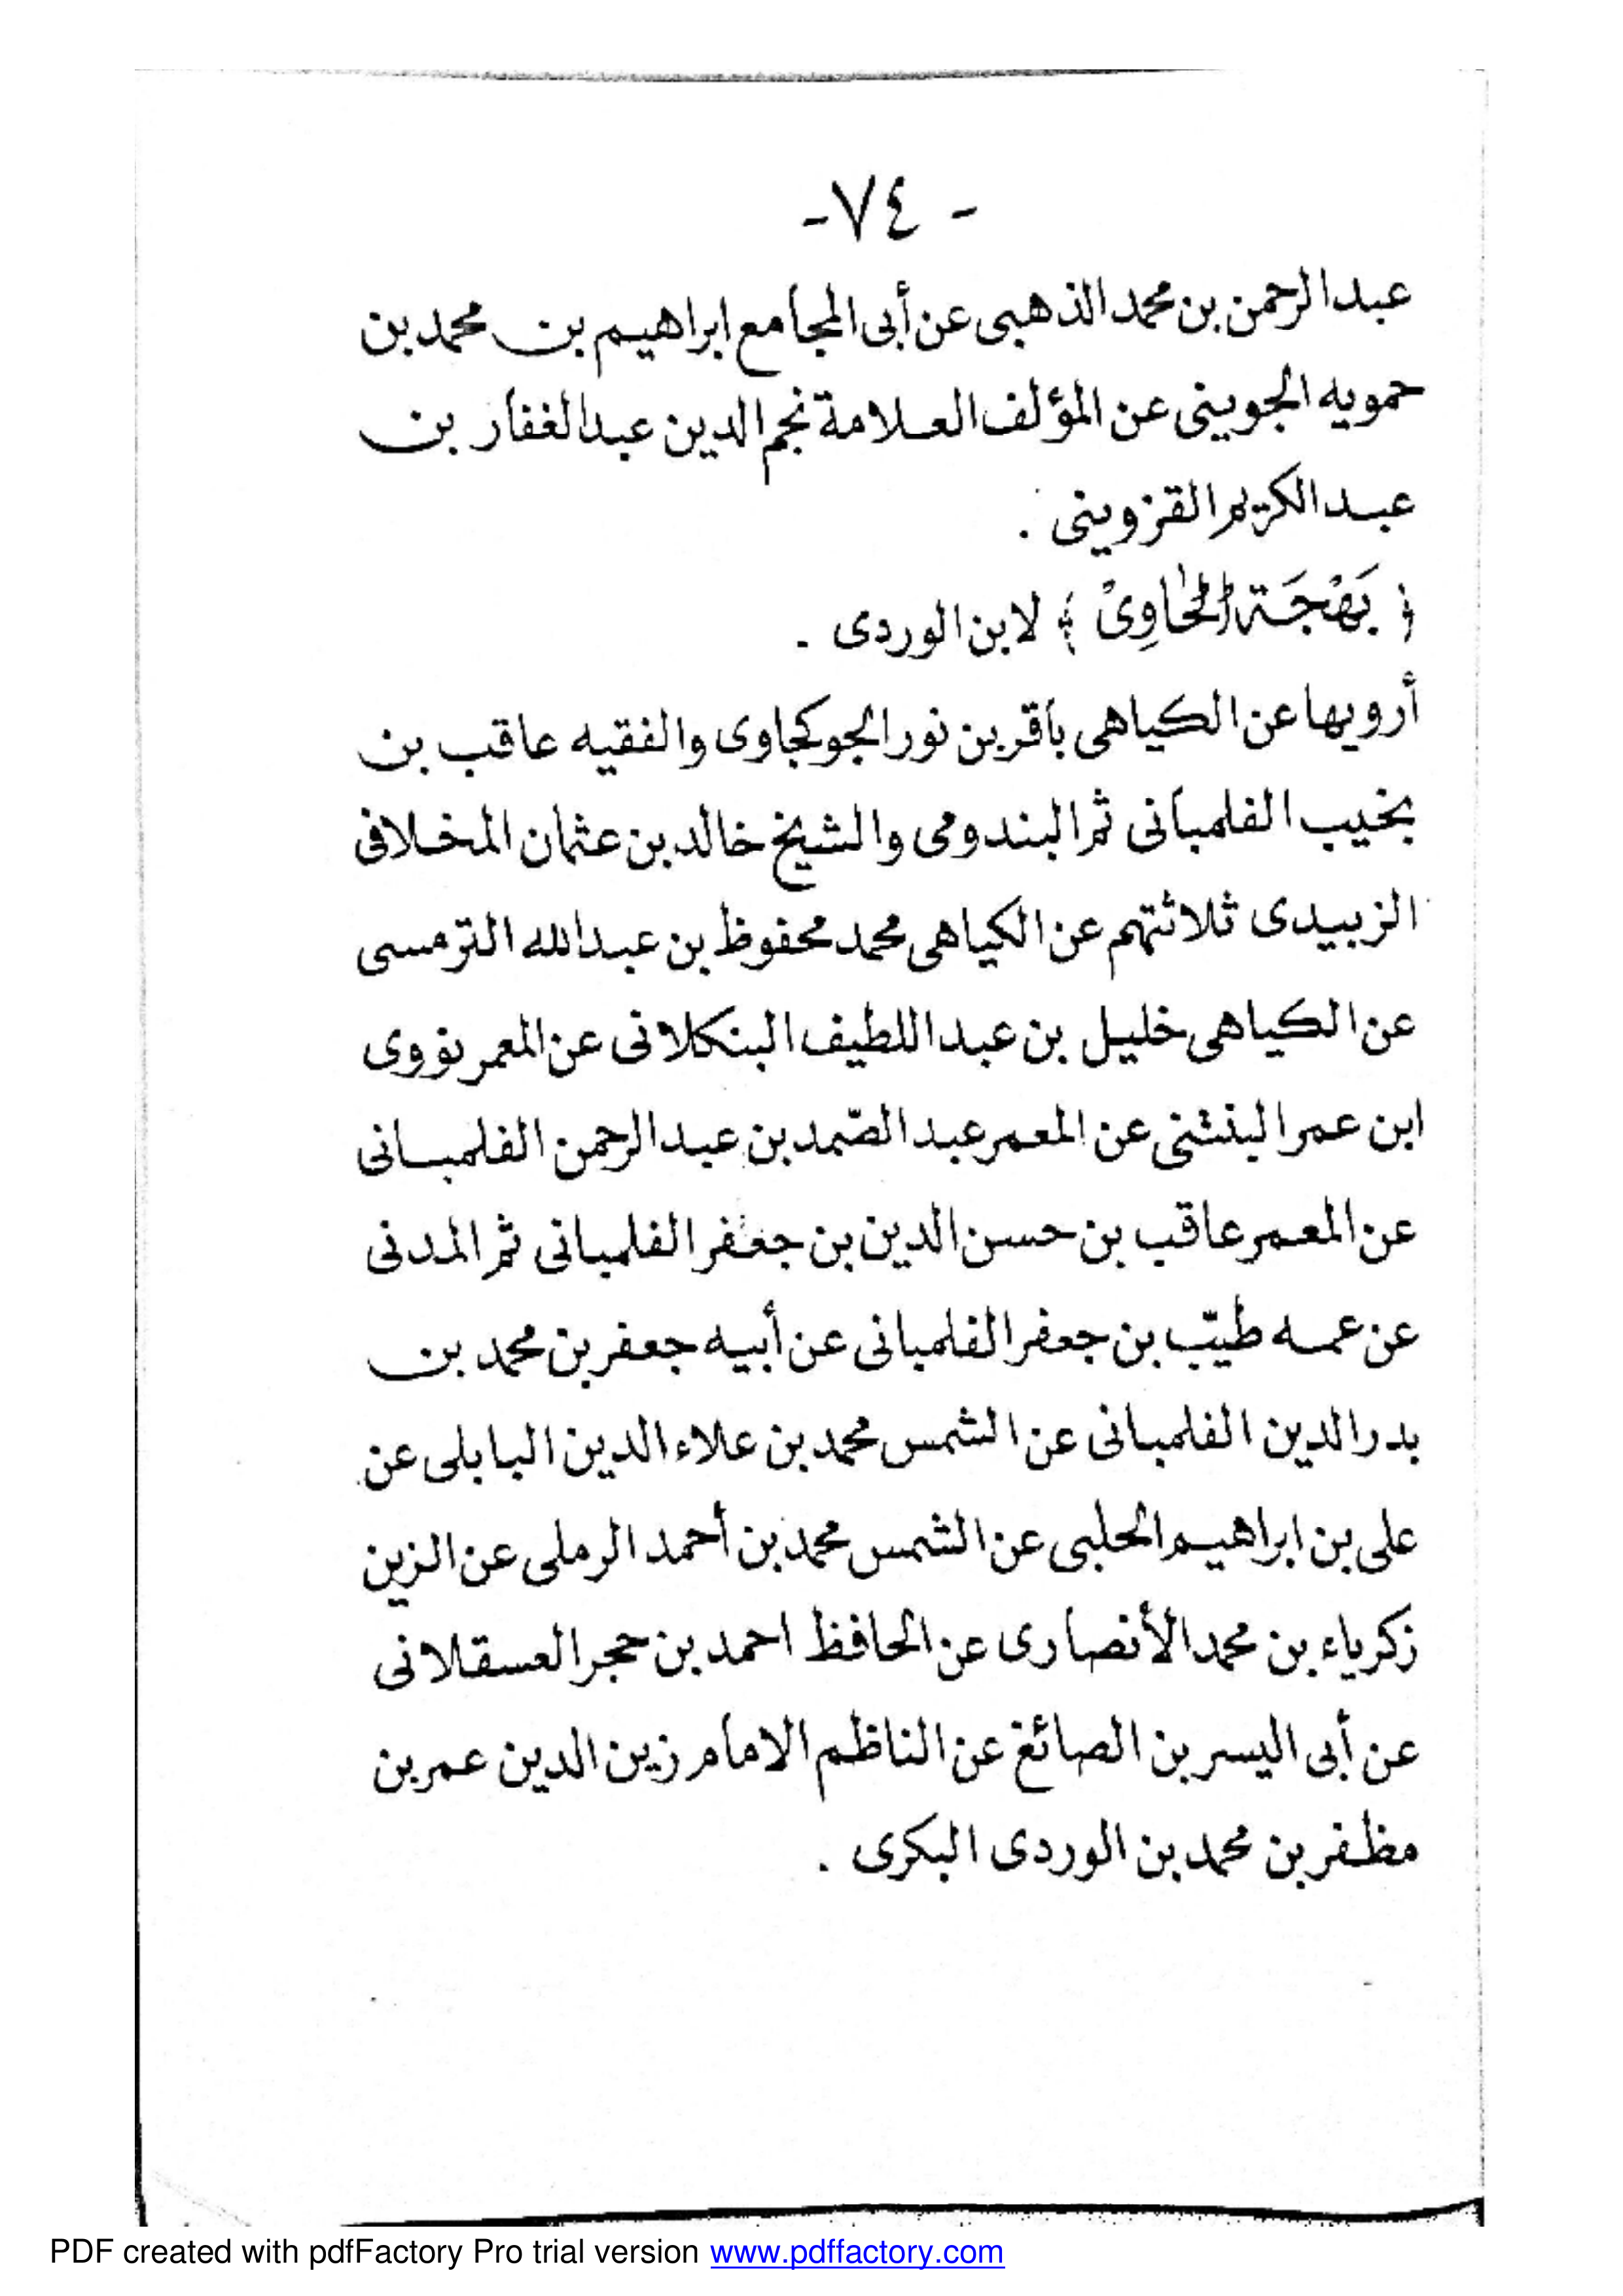 - ٧٤ -
عبد الرحمن بن محمد الذهبى عن أبى المجامع ابراهيم بن محمد بن
حمويه الجوينى عن المؤلف العلامة نجم الدين عبد الغفار بن
عبد الكريم القزوينى .
﴿ بَهْجَة الْحَاوِىْ ﴾ لابن الوردى .
أرويها عن الكياهى باقر بن نور الجوكجاوى والفقيه عاقب بن
بخيب الفلمبانى ثم البندومى والشيخ خالد بن عثمان المخلافى
الزبيدى ثلاثتهم عن الكياهى محمد محفوظ بن عبد الله الترمسى
عن الكياهى خليل بن عبد اللطيف البنكلانى عن المعمر نووى
ابن عمر البنتنى عن المعمر عبد الصّمد بن عبد الرحمن الفلمبانى
عن المعمر عاقب بن حسن الدين بن جعفر الفلمبانى ثم المدنى
عن عمه طيّب بن جعفر الفلمبانى عن أبيه جعفر بن محمد بن
بدر الدين الفلمبانى عن الشمس محمد بن علاء الدين البابلى عن
على بن ابراهيم الحلبى عن الشمس محمد بن أحمد الرملى عن الزين
زكرياء بن محمد الأنصارى عن الحافظ احمد بن حجر العسقلانى
عن أبى اليسر بن الصائغ عن الناظم الامام زين الدين عمر بن
مظفر بن محمد بن الوردى البكرى .
PDF created with pdfFactory Pro trial version www.pdffactory.com